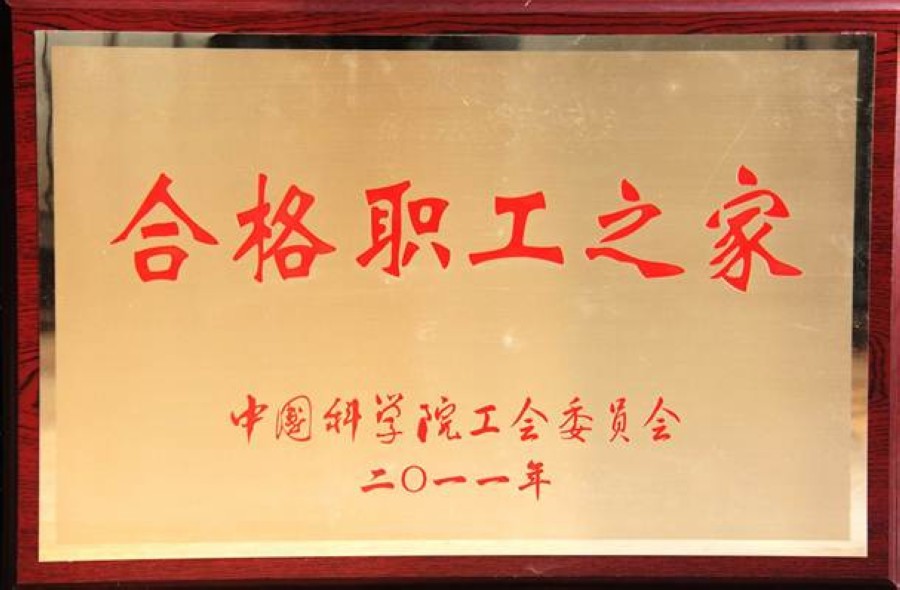 合格职工之家
中国科学院工会委员会
二〇一一年